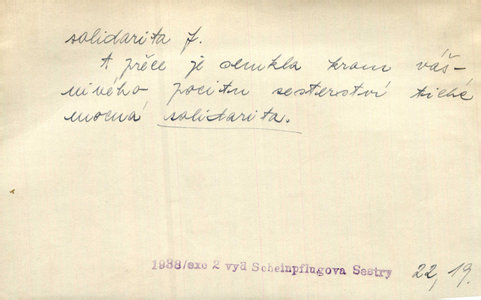 solidarita f.
A přece je semkla krom váš-
nivého pocitu sesterství tichá
mocná solidarita.
1938/exc 2 vyd Scheinpflugova Sestry 22, 19.